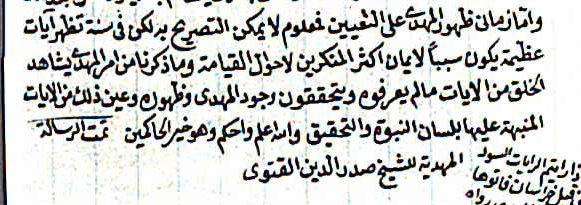 واما زمان ظهور المهدى على التعيين فمعلوم لا يمكن التصريح به لكن فى سنة تظهر آيات
عظيمة يكون سبباً لايمان اكثر المنكرين لاحوال القيامة وما ذكرنا من امر المهدى يشاهد
الخلق من الايات مالم يعرفوه ويتحققون وجود المهدى وظهوره وعين ذلك من الايات
المنبهة عليها بلسان النبوة والتحقيق والله اعلم واحكم وهو خير الحاكمين تمت الرسالة
المهدية للشيخ صدر الدين القنوى
اذا رايتم الرايات السود
قبل خراسان فاتوها
رواه